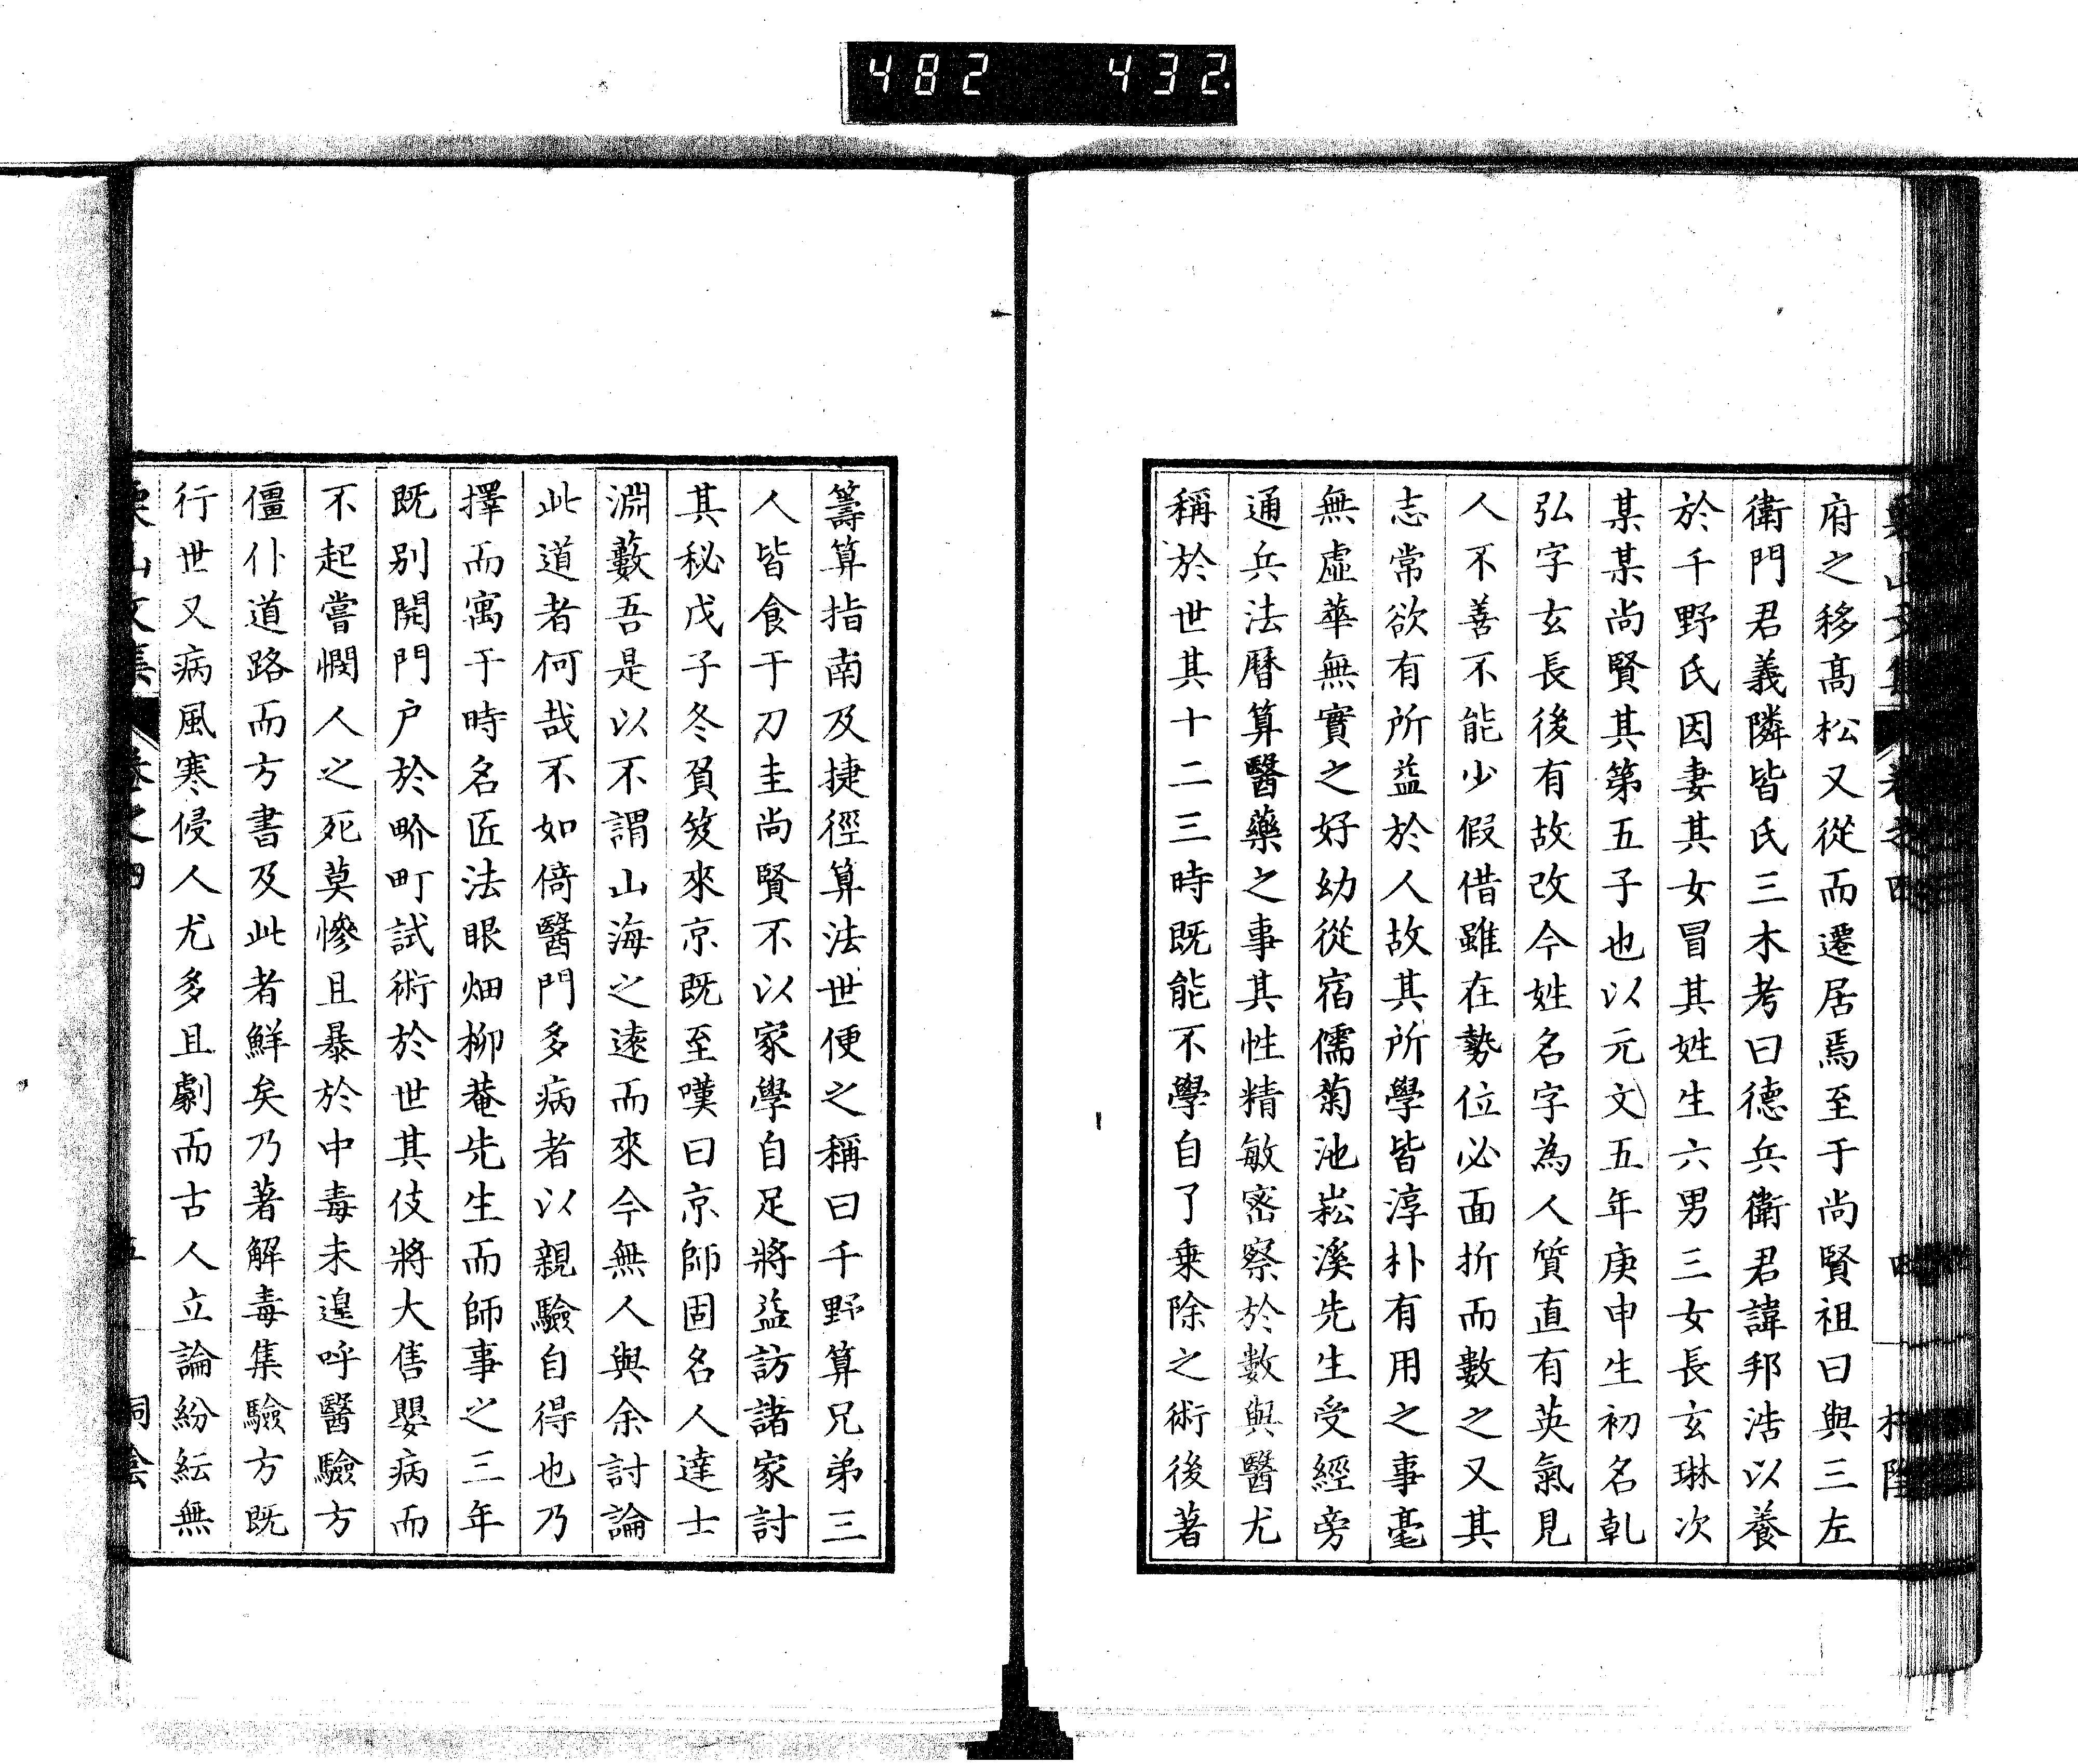 482 432
府之移髙松又從而遷居焉至于尚賢祖曰與三左
衛門君義隣皆氏三木考曰德兵衛君諱邦浩以養
於千野氏因妻其女冒其姓生六男三女長玄琳次
某某尚賢其第五子也以元文五年庚申生初名乹
弘字玄長後有故改今姓名字為人質直有英氣見
人不善不能少假借雖在勢位必面折而數之又其
志常欲有所益於人故其所學皆淳朴有用之事毫
無虛華無實之好幼從宿儒菊池崧溪先生受經旁
通兵法曆算醫藥之事其性精敏密察於數與醫尤
稱於世其十二三時既能不學自了乗除之術後著
籌算指南及捷徑算法世便之稱曰千野算兄弟三
人皆食于刀圭尚賢不以家學自足將益訪諸家討
其秘戊子冬負笈來京既至嘆曰京師固名人達士
淵藪吾是以不謂山海之遠而來今無人與余討論
此道者何哉不如倚醫門多病者以親驗自得也乃
擇而寓于時名匠法眼畑柳菴先生而師事之三年
既别開門户於畍町試術於世其伎將大售嬰病而
不起嘗憫人之死莫慘且暴於中毒未遑呼醫驗方
僵仆道路而方書及此者鮮矣乃著解毒集驗方既
行世又病風寒侵人尤多且劇而古人立論紛紜無